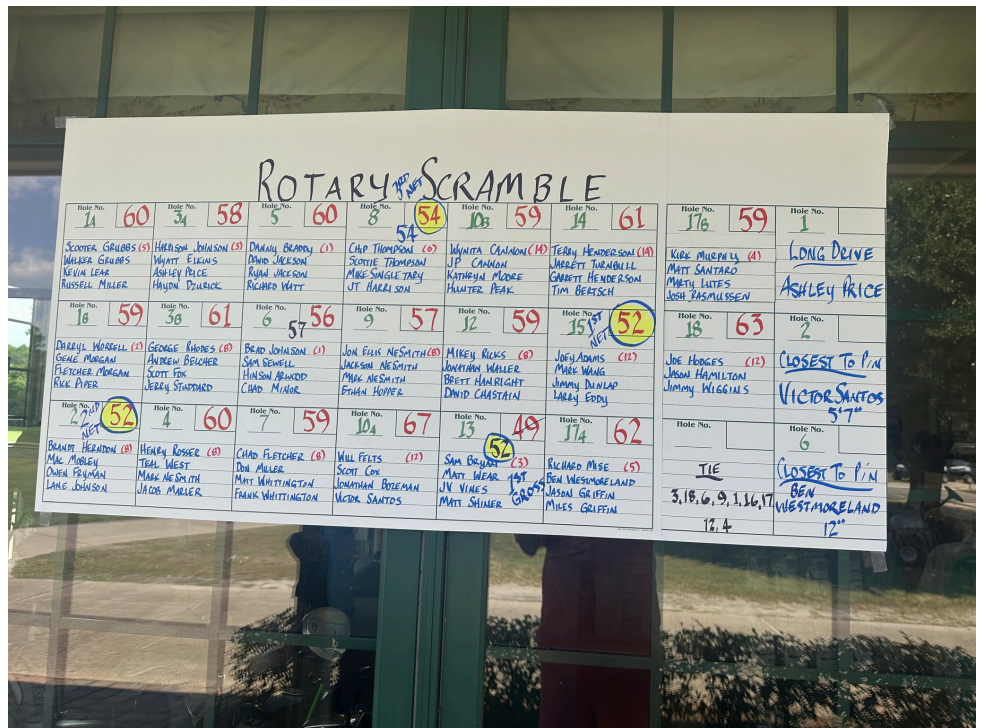 ROTARY SCRAMBLE
3RD NET
Hole No. 1A 60
SCOOTER GRUBBS (5)
WALKER GRUBBS
KEVIN LEAR
RUSSELL MILLER
Hole No. 3A 58
HARRISON JOHNSON (3)
WYATT ELKINS
ASHLEY PRICE
HAYDN DZURICK
Hole No. 5 60
DANNY BRADDY (1)
DAVID JACKSON
RYAN JACKSON
RICHARD WATT
Hole No. 8 54
54
CHIP THOMPSON (6)
SCOTTIE THOMPSON
MIKE SINGLETARY
JT HARRISON
Hole No. 10B 59
WYNITA CANNON (14)
JP CANNON
KATHRYN MOORE
HUNTER PEAK
Hole No. 14 61
TERRY HENDERSON (14)
JARRETT TURNBULL
GARRETT HENDERSON
TIM BERTSCH
Hole No. 17B 59
KIRK MURPHY (4)
MATT SANTARO
MARTY LUTES
JOSH RASMUSSEN
Hole No. 1
LONG DRIVE
ASHLEY PRICE
Hole No. 1B 59
DARRYL WORRELL (2)
GENE MORGAN
FLETCHER MORGAN
RICK PIPER
Hole No. 3B 61
GEORGE RHODES (8)
ANDREW BELCHER
SCOTT FOX
JERRY STUDDARD
Hole No. 6 56
57
BRAD JOHNSON (1)
SAM SEWELL
HINSON
CHAD MINOR
Hole No. 9 57
JON ELLIS NESMITH (8)
JACKSON NESMITH
MARK NESMITH
ETHAN HOPPER
Hole No. 12 59
MIKEY RICKS (8)
JONATHAN WALLER
BRETT HANRIGHT
DAVID CHASTAIN
Hole No. 15 1ST NET 52
JOEY ADAMS (12)
MARK WANG
JIMMY DUNLAP
LARRY EDDY
Hole No. 18 63
JOE HODGES (12)
JASON HAMILTON
JIMMY WIGGINS
Hole No. 2
CLOSEST TO PIN
VICTOR SANTOS
5'7"
Hole No. 2 2ND NET 52
BRANDT HERNDON (8)
MAC MOBLEY
OWEN FRYMAN
LANE JOHNSON
Hole No. 4 60
HENRY ROSSER (8)
TEAL WEST
MARK NESMITH
JACOB MARLER
Hole No. 7 59
CHAD FLETCHER (8)
DON MILLER
MATT WHITTINGTON
FRANK WHITTINGTON
Hole No. 10A 67
WILL FELTS (12)
SCOTT COX
JONATHAN BOZEMAN
VICTOR SANTOS
Hole No. 13 49
52
SAM BRYAN (3)
MATT WEAR
JV VINES
MATT SHINER
1ST GROSS
Hole No. 17A 62
RICHARD MISE (5)
BEN WESTMORELAND
JASON GRIFFIN
MILES GRIFFIN
Hole No.
TIE
3,18,6,9,1,16,17
12,4
Hole No. 6
CLOSEST TO PIN
BEN
WESTMORELAND
12"